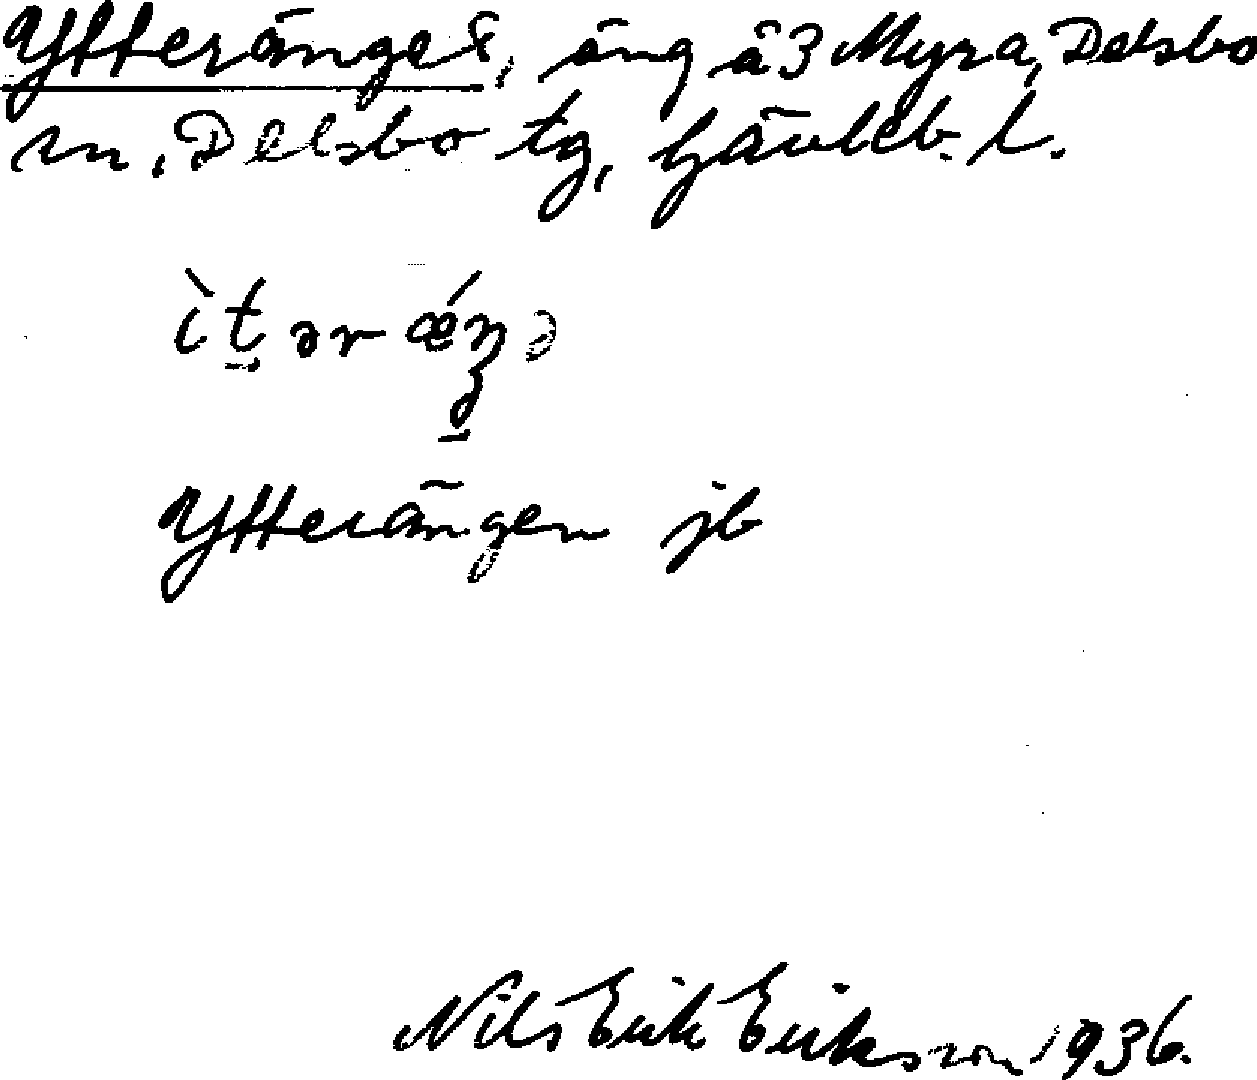 Ytteränget, äng å 3 Myra, Delsbo
sn, Delsbo tg, Gävleb. l.
ìt̠ərǽŋ̠ə
Ytterängen jb
Nils Erik Eriksson 1936.